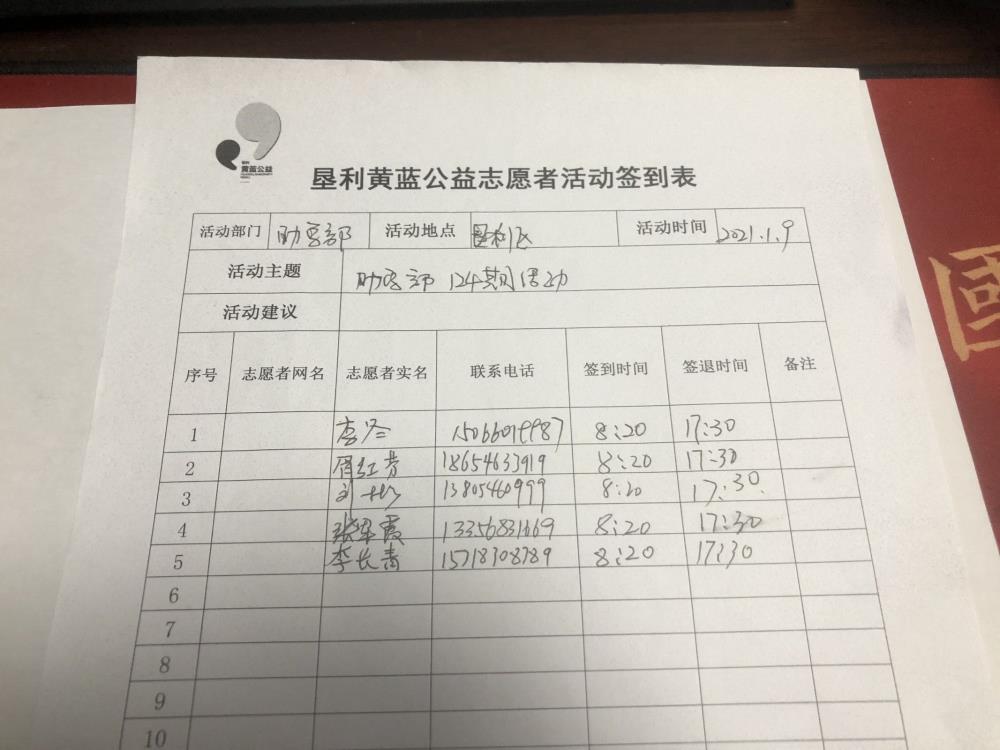 黄蓝公益
垦利黄蓝公益志愿者活动签到表
活动部门 助学部 活动地点 垦利区 活动时间 2021.1.9
活动主题 助学部 124期活动
活动建议
序号 志愿者网名 志愿者实名 联系电话 签到时间 签退时间 备注
1 8:20 17:30
2 周红芳 18654633919 8:20 17:30
3 13805460999 8:20 17:30
4 张军霞 8:20 17:30
5 李长青 15718308789 8:20 17:30
6
7
8
9
10
國